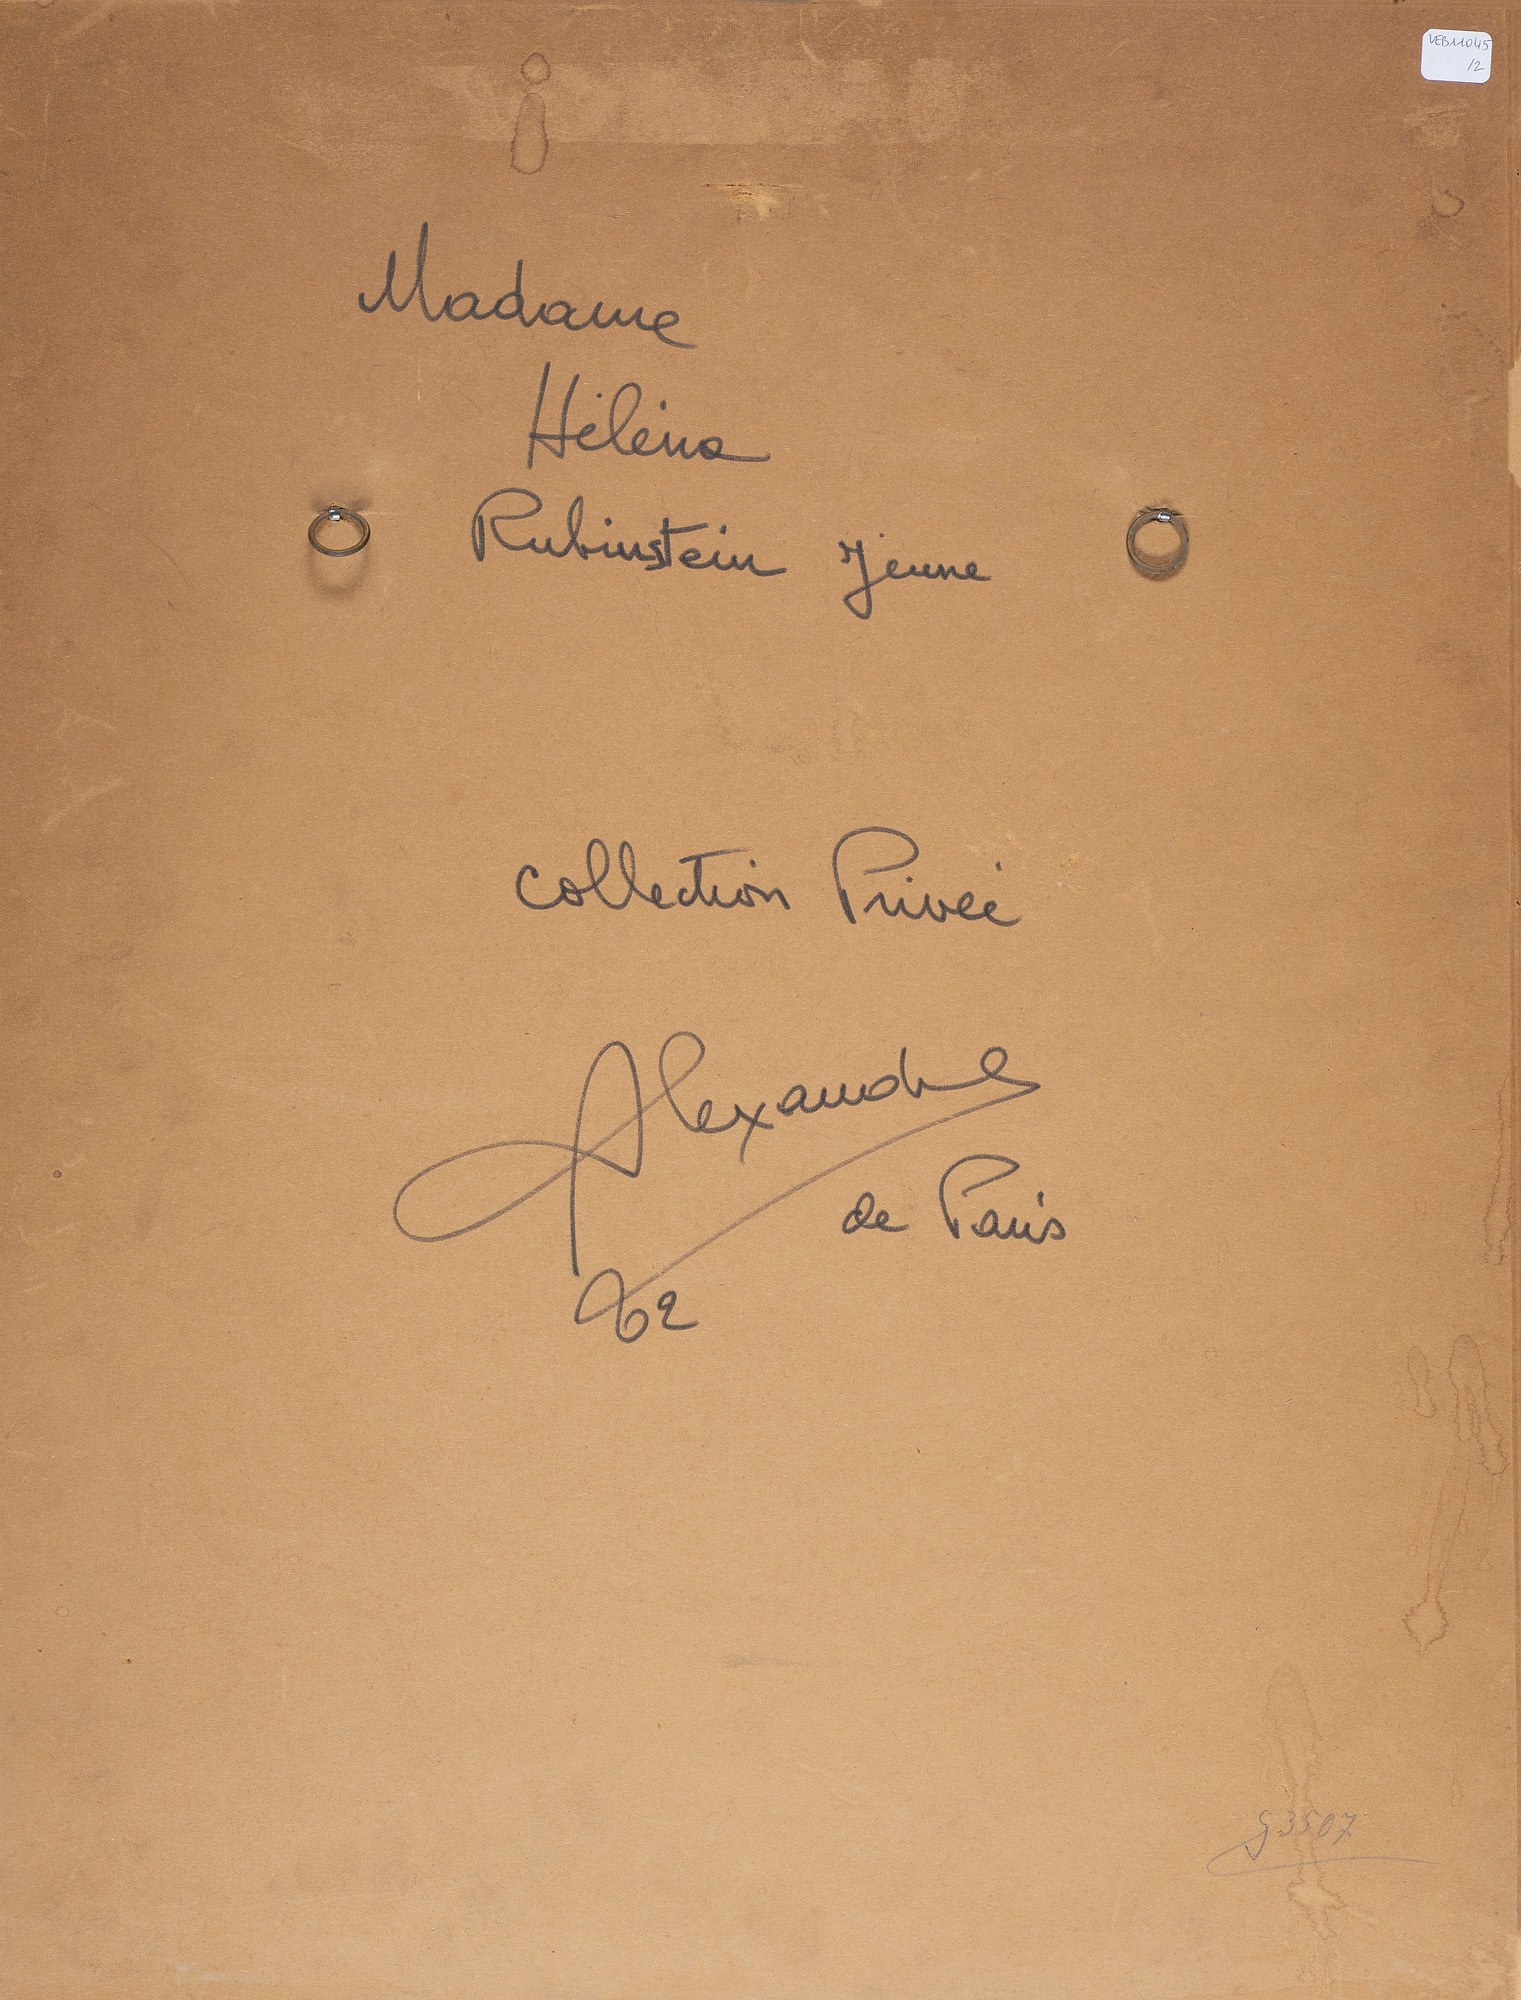 VEB11045
/2
Madame
Hélèna
Rubinstein Jeune
Collection Privée
Alexandre
de Paris
62
G3507